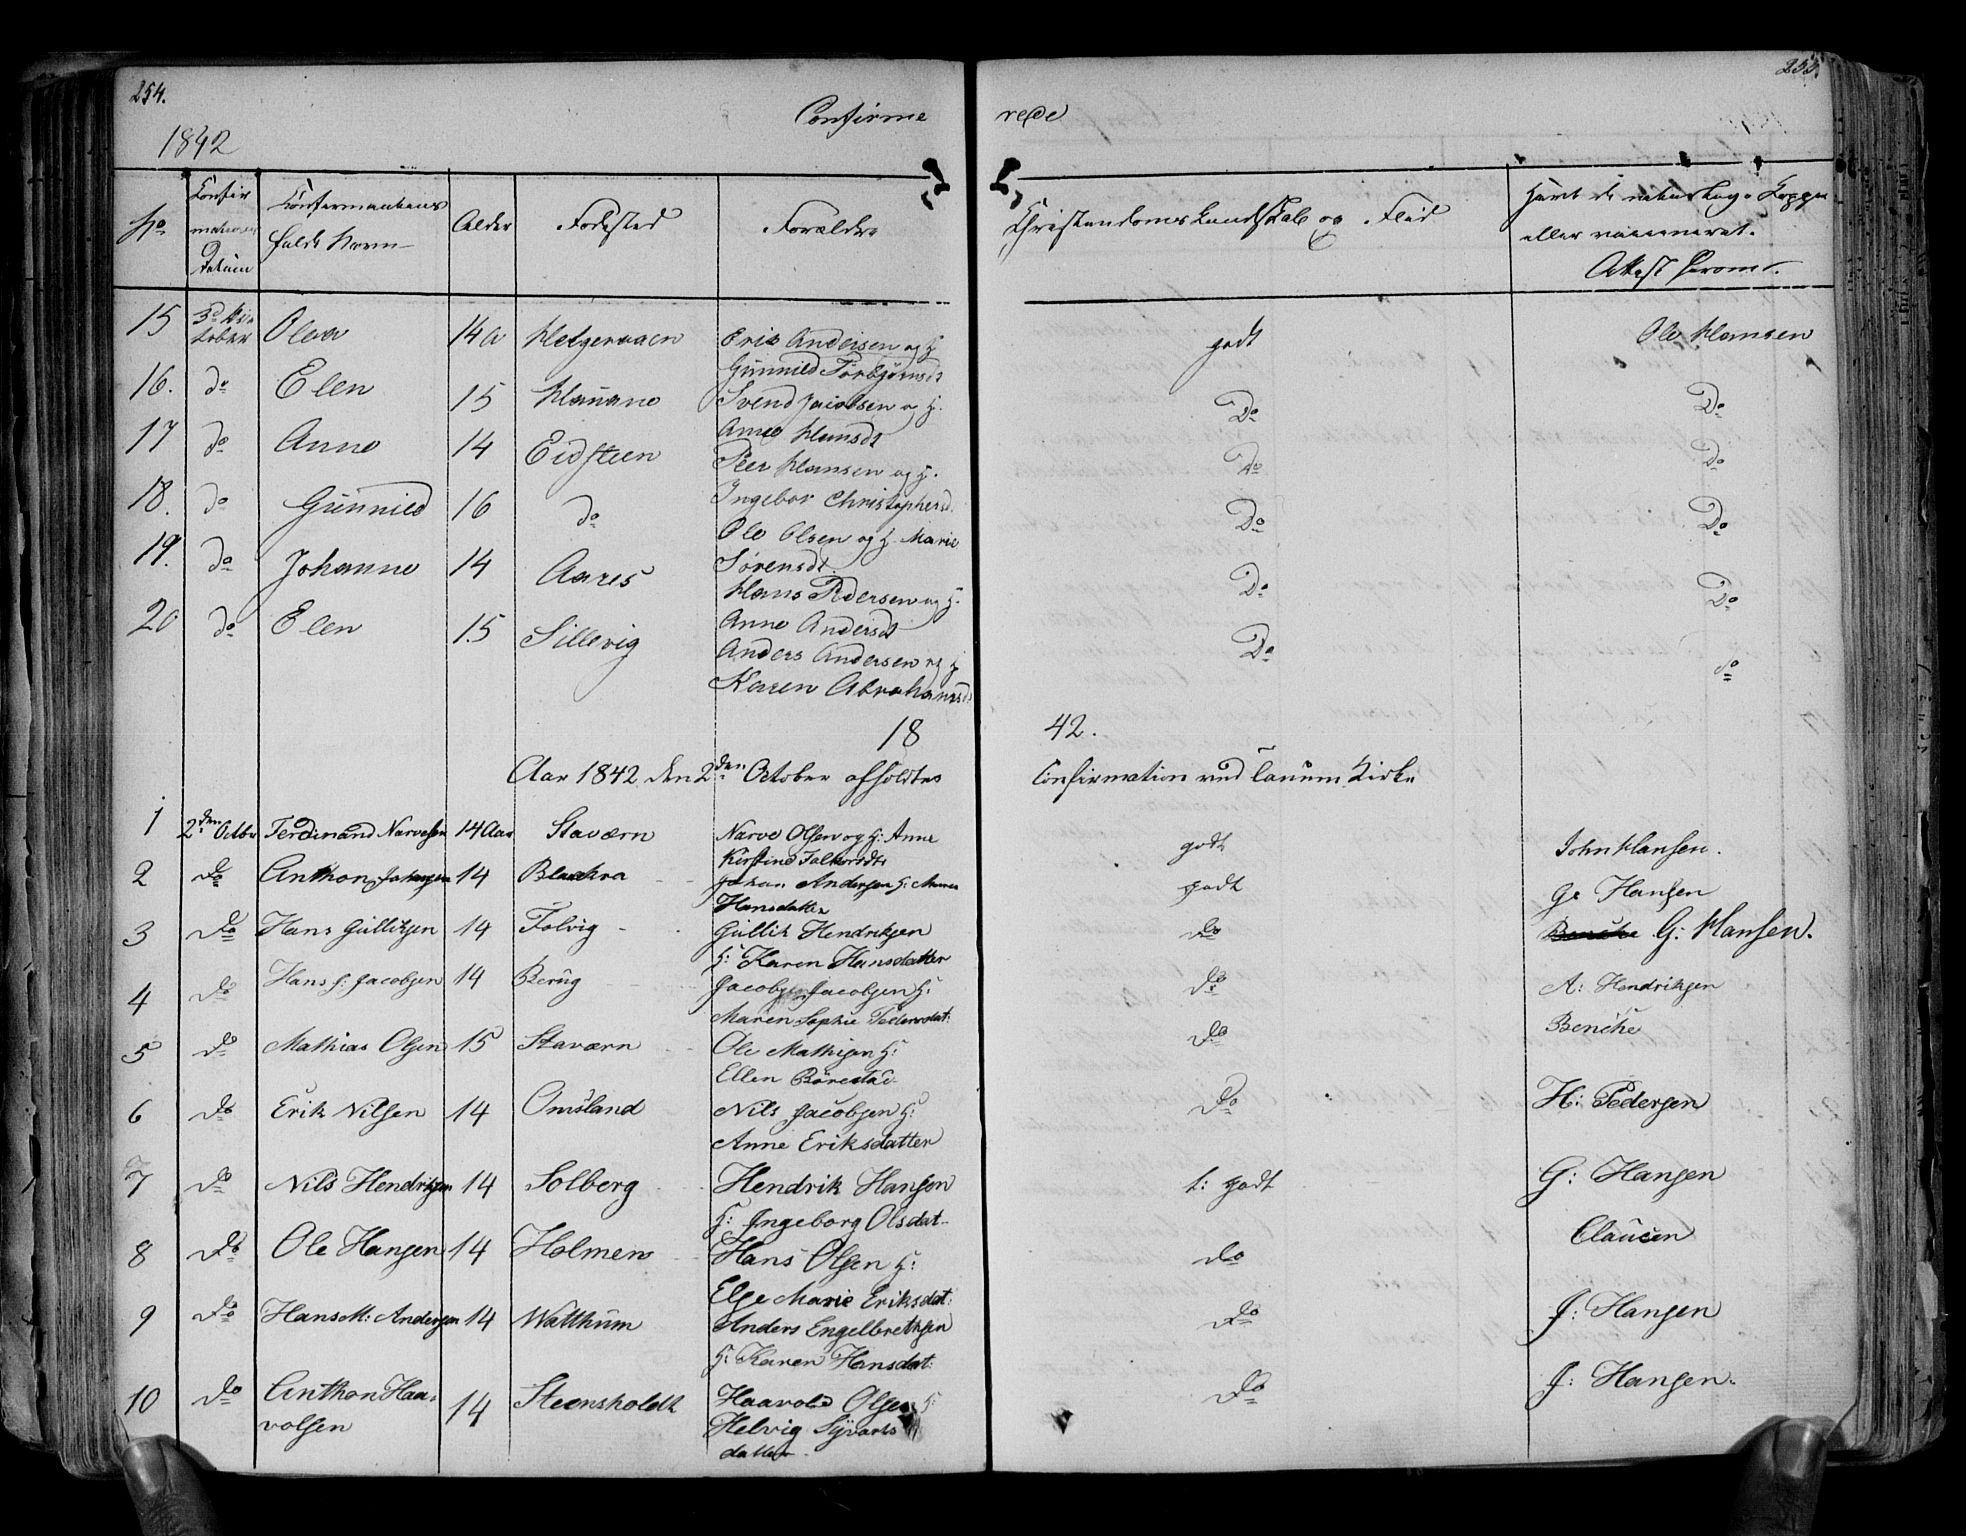 254.
255.
Confirme rede
1842
No
Confir
mations
Datum
Confirmantens
fulde Navn
Alder
Fødested
Forældre
Christendoms Kundskab og Flid
Havt de naturlige Kopper
eller vaccineret.
Attest fra
15 3d Oc
tober Olea 14 A Melgeraaen Eric Andersen og H. godt Ole Hansen
Gunnild Torbjørnsdt
16. do Elen 15 Svend Jacobsen og H. Do Do
Anne Hansdt
17 do Anne 14 Eidsteen Peer Hansen og H. Do Do
Ingebor Christophersd.
18. do Gunnild 16 do Ole Olsen og H. Marie Do Do
Sørensdt.
19. do Johanne 14 Aares Hans Pedersen og H. Do Do
Anne Andersdt
20 do Elen 15 Sillevig Anders Andersen og H Do do
Karen Abrahamsdt
18 42.
Aar 1842 den 2den October afholdtes Confirmation ved Tanum Kirke
1 2den Octbr Ferdinand Narvesen 14 Aar Staværn Narve Olsen og H: Anne godt John Hansen.
Kirstine Falkorsdtr
2 Do Anthon Johansen 14 Johan Andersen H: Maren godt G: Hansen
Hansdatter
3 Do Hans Gulliksen 14 Folvig Gullik Hendriksen do G: Hansen.
H: Karen Hansdatter
4 Do Hans J: Jacobsen 14 Berug Jacob Jacobsen H: Do A: Hendriksen
Maren Sophie Pedersdat:
5 do Mathias Olsen 15 Staværn Ole Mathisen H: do Benche
Ellen Børestad
6 do Erik Nilsen 14 Omsland Nils Jacobsen H: Do H: Pedersen
Anne Eriksdatter
7 do Nils Hendriksen 14 Solberg Hendrik Hanson t: godt G: Hansen
H: Ingeborg Olsdat
8 do Ole Hansen 14 Holmen Hans Olsen H: do Claucen
Else Marie Eriksdat:
9 do Hans M: Andersen 14 Watthum Anders Engelbrethsen do J: Hansen
H: Karen Hansdat:
10 do Anthon Haa-
volsen 14 Steensholdt Haavold Olsen H: do J: Hansen.
Helvig Syvarts
datter